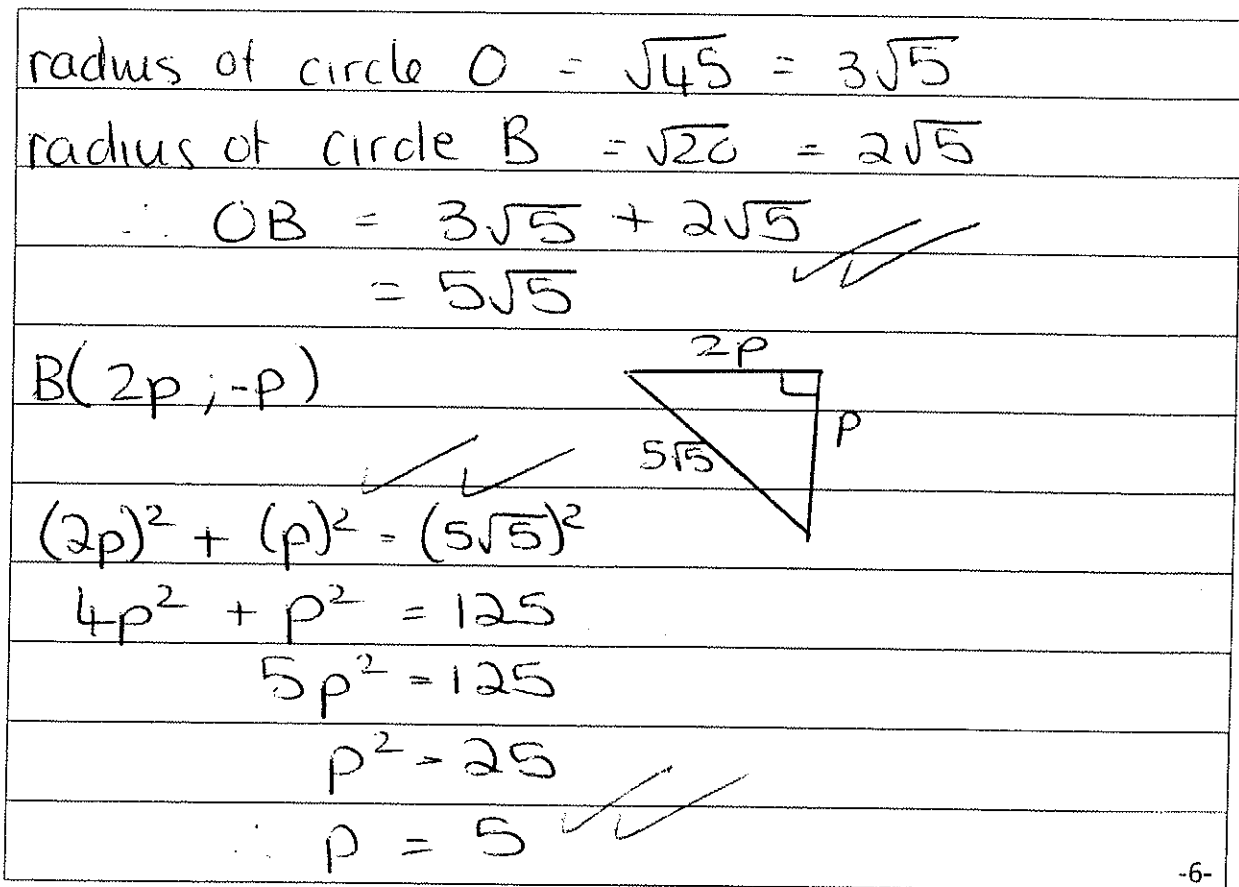 radius of circle O = √45 = 3√5
radius of circle B = √20 = 2√5
∴ OB = 3√5 + 2√5
= 5√5
B(2p ; -p)
2p
p
5√5
(2p)² + (p)² = (5√5)²
4p² + p² = 125
5p² = 125
p² = 25
∴ p = 5
-6-